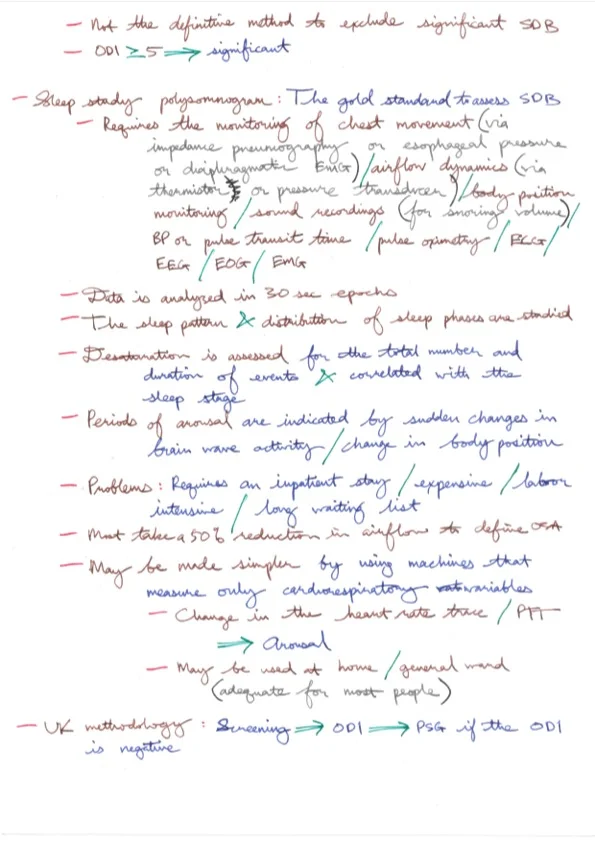 — Not the definitive method to exclude significant SDB
— ODI ≥ 5 ⟹ significant
— Sleep study polysomnogram : The gold standard to assess SDB
— Requires the monitoring of chest movement (via
impedance pneumography or esophageal pressure
or diaphragmatic EMG) / airflow dynamics (via
thermistor or pressure transducer) / body position
monitoring / sound recordings (for snoring volume) /
BP or pulse transit time / pulse oximetry / ECG /
EEG / EOG / EMG
— Data is analyzed in 30 sec epochs
— The sleep pattern & distribution of sleep phases are studied
— Desaturation is assessed for the total number and
duration of events & correlated with the
sleep stage
— Periods of arousal are indicated by sudden changes in
brain wave activity / change in body position
— Problems : Requires an inpatient stay / expensive / labor
intensive / long waiting list
— Most take a 50% reduction in airflow to define OSA
— May be made simpler by using machines that
measure only cardiorespiratory variables
— Change in the heart rate trace / PTT
⟹ Arousal
— May be used at home / general ward
(adequate for most people)
— UK methodology : Screening ⟹ ODI ⟹ PSG if the ODI
is negative